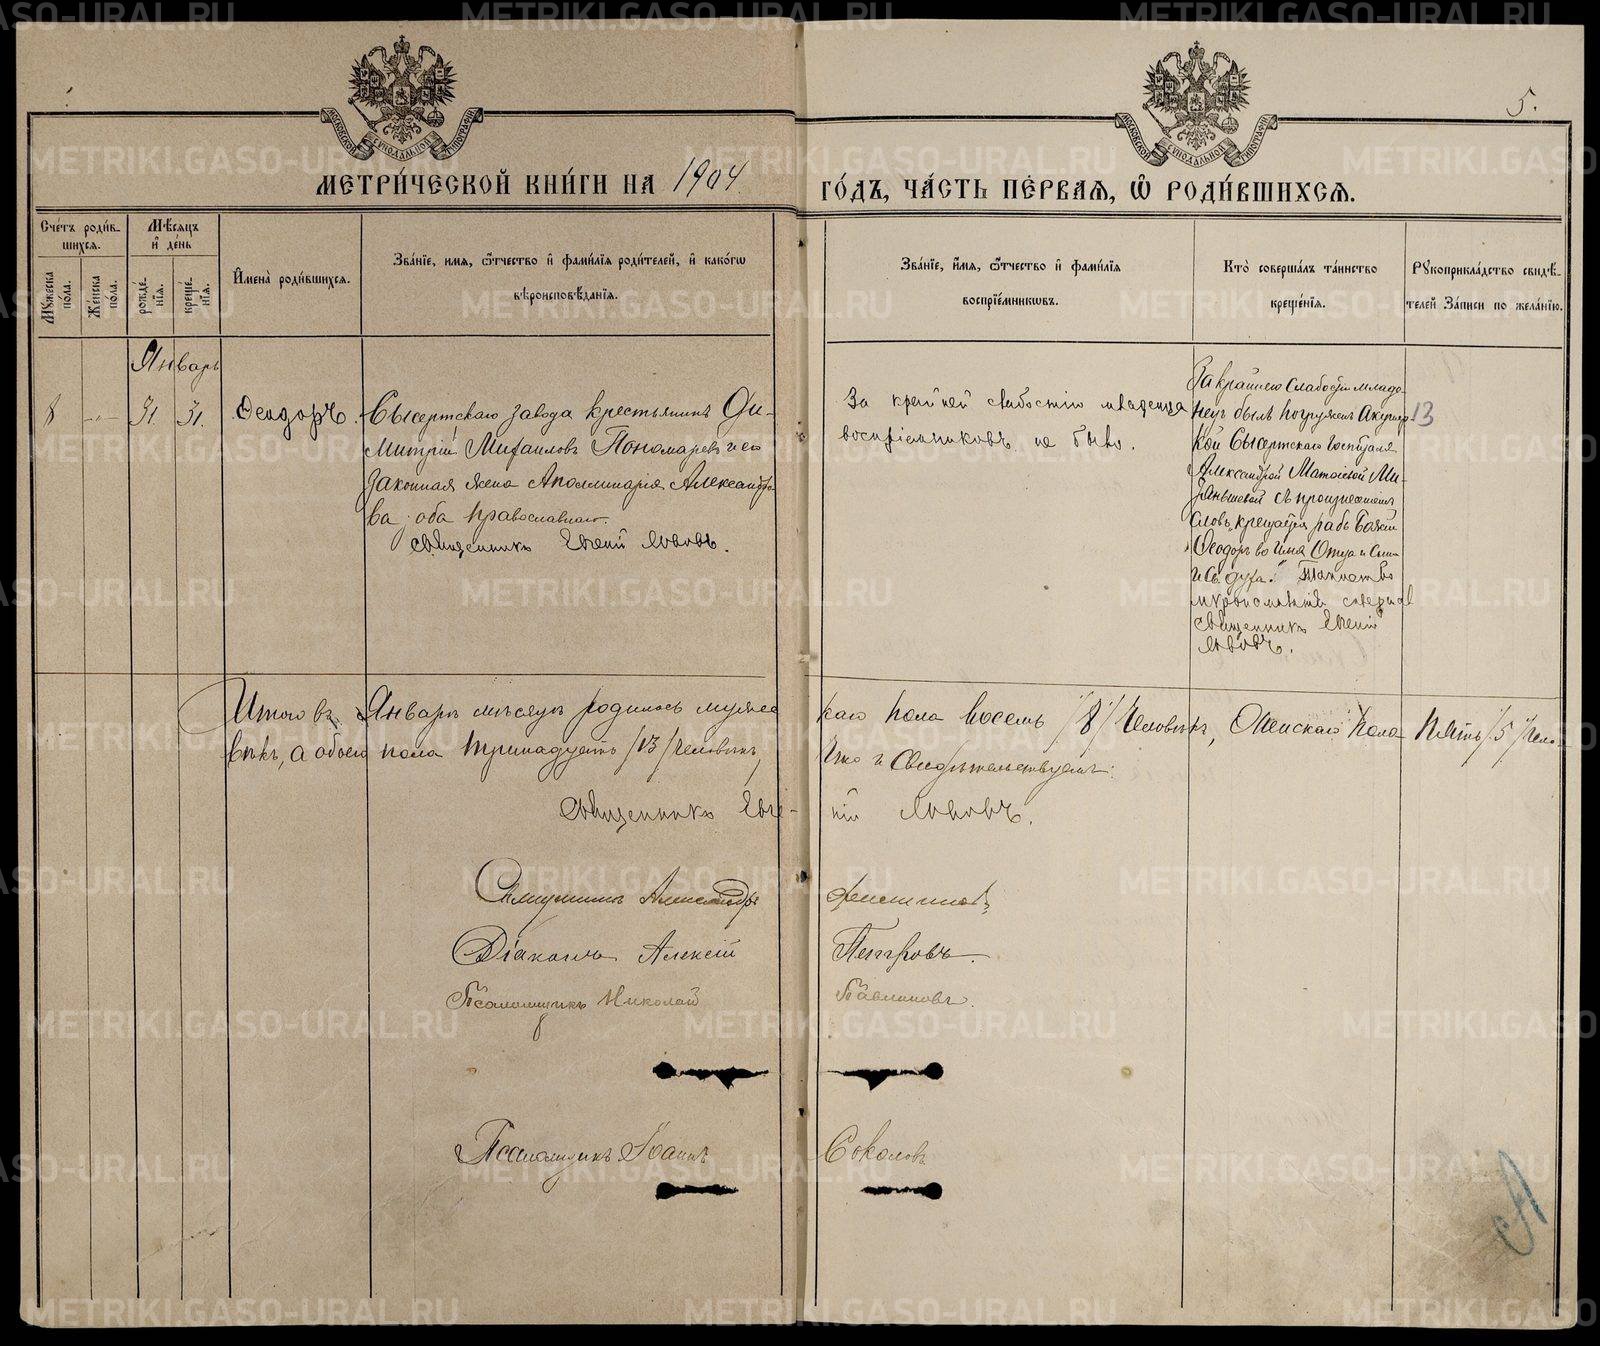 METRIKI.GASO-URAL.RU
МОСКОВСКОЙ СУНОДАЛЬНОЙ ТИПОГРАФІИ
МОСКОВСКОЙ СУНОДАЛЬНОЙ ТИПОГРАФІИ
5.
МЕТРИ́ЧЕСКОЙ КНИ́ГИ НА 1904
ГО́ДЪ, ЧА́СТЬ ПЕ́РВАЯ, Ѽ РОДИ́ВШИХСЯ.
Сче́тъ роди́в-
шихся.
Му́жеска по́ла.
Же́нска по́ла.
Мѣ́сяцъ
и҆ де́нь
рожде́-
нїя.
креще́-
нїя.
И҆мена̀ роди́вшихся.
Зва́нїе, и҆мя, ѻ҆́тчество и҆ фами́лїя роди́телей, и҆ како́гѡ
вѣроисповѣ́данїя.
Зва́нїе, и҆́мя, ѻ҆́тчество и҆ фами́лїя
воспрїе́мникѡвъ.
Кто̀ соверша́лъ та́инство
креще́нїя.
Рꙋкоприкла́дство свидѣ́-
телей за́писи по жела́нїю.
Январь
8 -„- 31. 31. Ѳеодоръ.
Сысертскаго завода крестьянинъ Ди-
митрій Михаиловъ Пономаревъ и его
законная жена Аполлинарія Александро-
ва; оба православнаго.
Священникъ Евгеній Львовъ.
За крайней слабостію младенца
воспріемниковъ не было.
За крайнею слабостію младе-
нецъ былъ погруженъ акушер-
кой Сысертскаго госпиталя
Александрой
съ произнесеніемъ
словъ „крещается рабъ Божій
Ѳеодоръ во имя Отца и Сына
и Св. духа." Таинство
мѵропомазанія совершал
священникъ Евгеній
Львовъ.
13
Итого въ Январѣ мѣсяцѣ родилось мужес
каго пола восемь /8/ человѣкъ, Женскаго пола пять /5/ чело-
вѣкъ, а обоего пола тринадцать /13/ человѣкъ,
что и свидѣтельствуемъ:
Священникъ Евге-
ній Львовъ.
Священникъ Александръ
Діаконъ Алексій Петровъ.
Псаломщикъ Николай Павлиновъ.
Псаломщикъ Іоаннъ Соколовъ